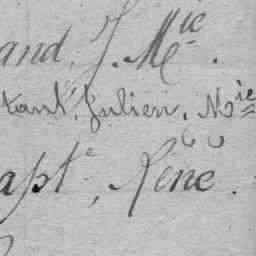 and, J. Mie.
tant, Julien, Mie
apte, René.